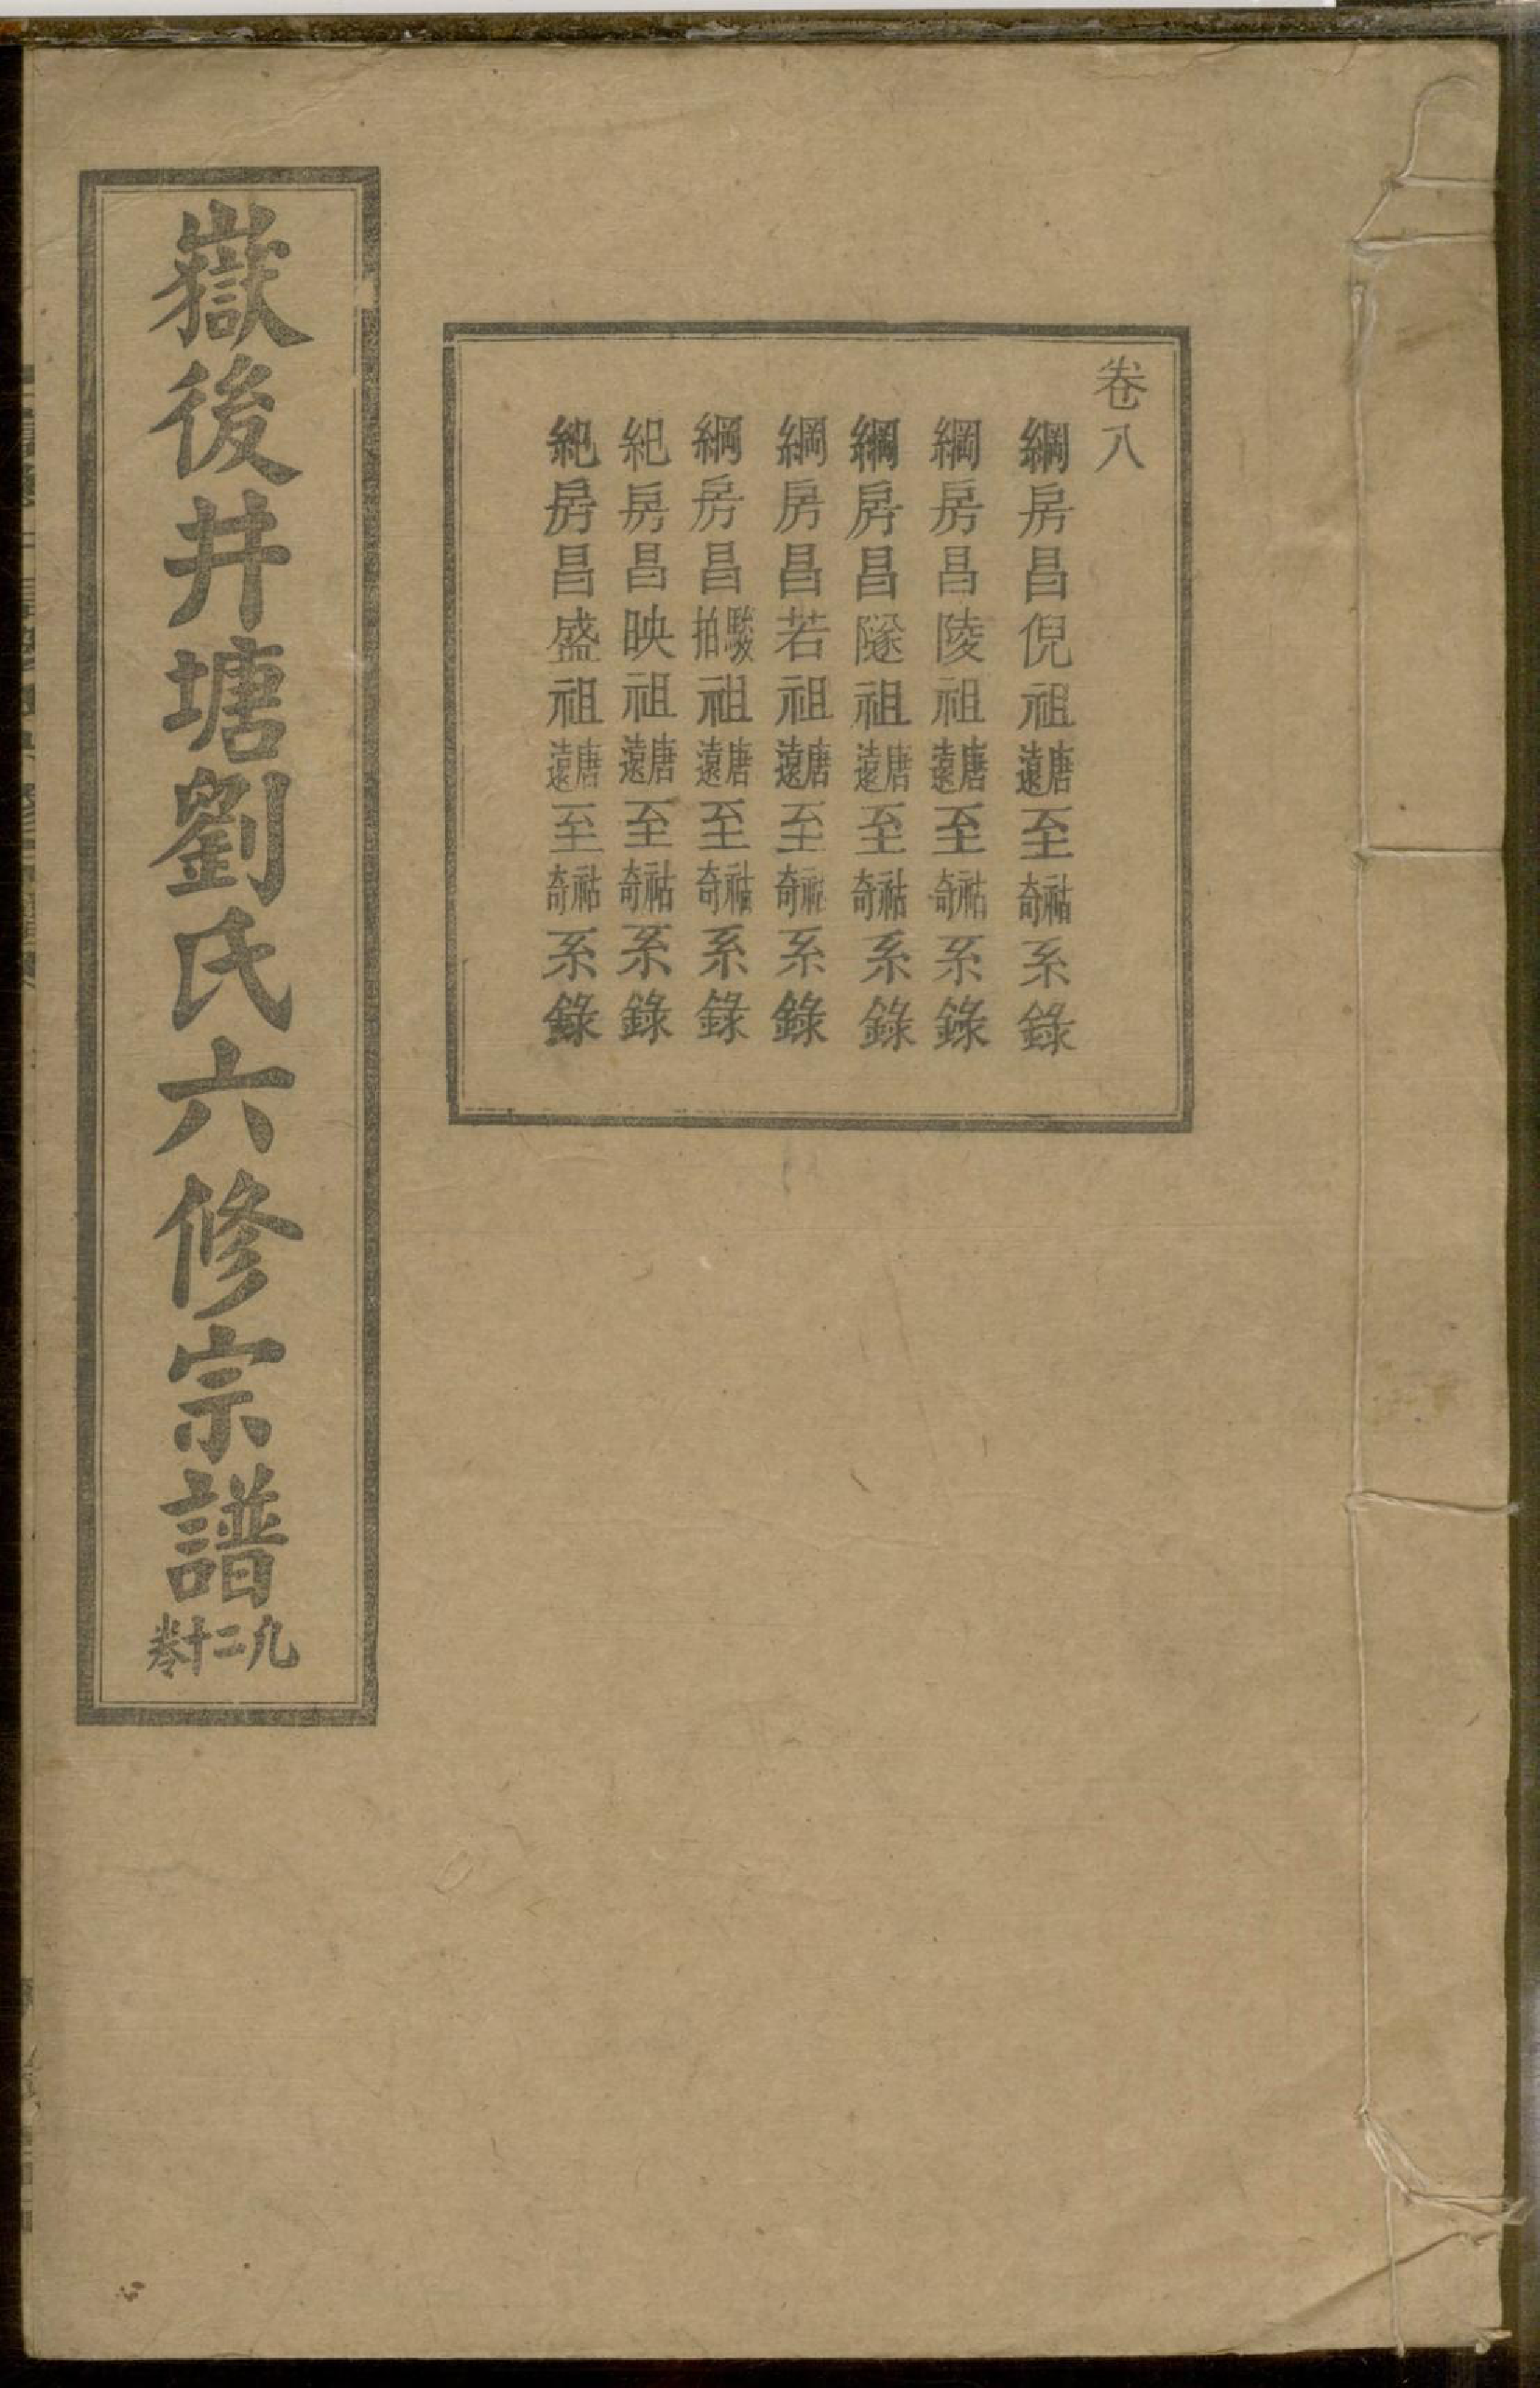 卷八
綱房昌倪祖唐遠至祜奇系錄
綱房昌陵祖唐遠至祜奇系錄
綱房昌隧祖唐遠至祜奇系錄
綱房昌若祖唐遠至祜奇系錄
綱房昌駿拍祖唐遠至祜奇系錄
紀房昌映祖唐遠至祜奇系錄
紀房昌盛祖唐遠至祜奇系錄
嶽後井塘劉氏六修宗譜
九二十卷